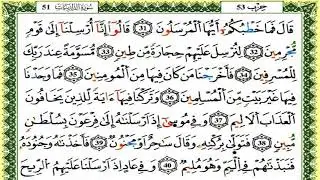 51 سورة الذاريات حزب 53
قَالَ فَمَا خَطْبُكُمْ أَيُّهَا الْمُرْسَلُونَ 31 قَالُوا إِنَّا أُرْسِلْنَا إِلَى قَوْمٍ
مُجْرِمِينَ 32 لِنُرْسِلَ عَلَيْهِمْ حِجَارَةً مِنْ طِينٍ 33 مُسَوَّمَةً عِنْدَ رَبِّكَ
لِلْمُسْرِفِينَ 34 فَأَخْرَجْنَا مَنْ كَانَ فِيهَا مِنَ الْمُؤْمِنِينَ 35 فَمَا وَجَدْنَا
فِيهَا غَيْرَ بَيْتٍ مِنَ الْمُسْلِمِينَ 36 وَتَرَكْنَا فِيهَا آيَةً لِلَّذِينَ يَخَافُونَ
الْعَذَابَ الْأَلِيمَ 37 وَفِي مُوسَى إِذْ أَرْسَلْنَاهُ إِلَى فِرْعَوْنَ بِسُلْطَانٍ
مُبِينٍ 38 فَتَوَلَّى بِرُكْنِهِ وَقَالَ سَاحِرٌ أَوْ مَجْنُونٌ 39 فَأَخَذْنَاهُ وَجُنُودَهُ
فَنَبَذْنَاهُمْ فِي الْيَمِّ وَهُوَ مُلِيمٌ 40 وَفِي عَادٍ إِذْ أَرْسَلْنَا عَلَيْهِمُ الرِّيحَ